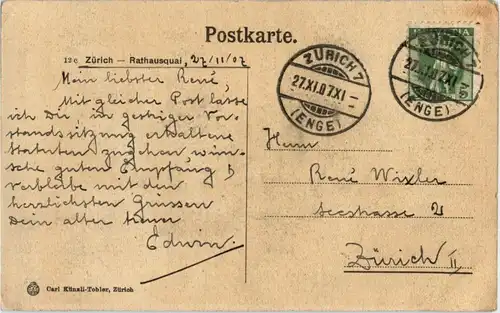 Postkarte.
12 c Zürich — Rathausquai, 27/11/07
Mein liebster René,
Mit gleicher Post lasse
ich Dir, in gestriger Vor-
standssitzung erhaltene
Statuten zugehen wün-
sche guten Empfang &
verbleibe mit den
herzlichsten Grüssen
Dein alter treuer
Edwin.
ZÜRICH 7
27.XI.07.XI
(ENGE)
ZÜRICH 7
27.XI.07.XI
(ENGE)
Herrn
René Wixler
Seestrasse 2
Zürich II
Carl Künzli-Tobler, Zürich